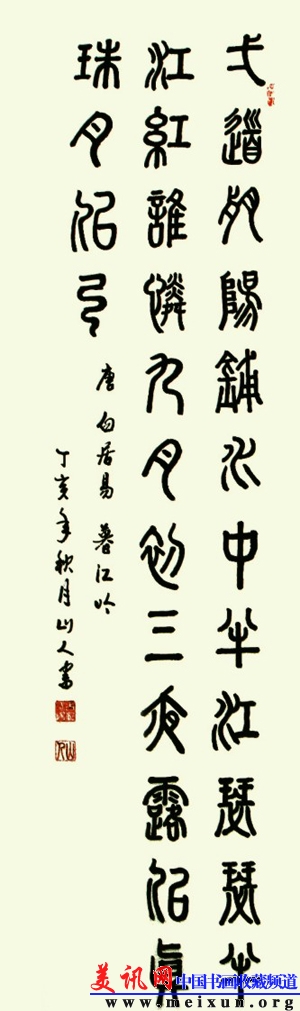 弌道殘陽鋪水中半江瑟瑟半
江紅誰憐九月初三夜露似眞
珠月似弓
唐白居易暮江吟
丁亥年秋月山人書
美讯网 中国书画收藏频道
www.meixun.org